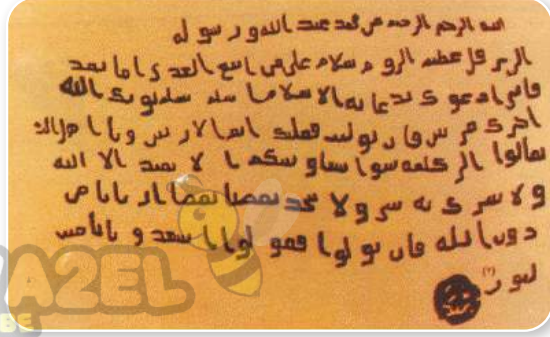 بسم الله الرحمن الرحيم من محمد عبد الله ورسوله
الى هرقل عظيم الروم سلام على من اتبع الهدى اما بعد
فانى ادعوك بدعاية الاسلام اسلم تسلم يوتك الله
اجرك مرتين فان توليت فعليك اثم الاريسين ويا اهل الكتب
تعالوا الى كلمة سوا بيننا وبينكم الا نعبد الا الله
ولا نشرك به شيا ولا يتخذ بعضنا بعضا اربابا من
دون الله فان تولوا فقولوا اشهدوا بانا مس
لمون (٢)
A2EL
BE